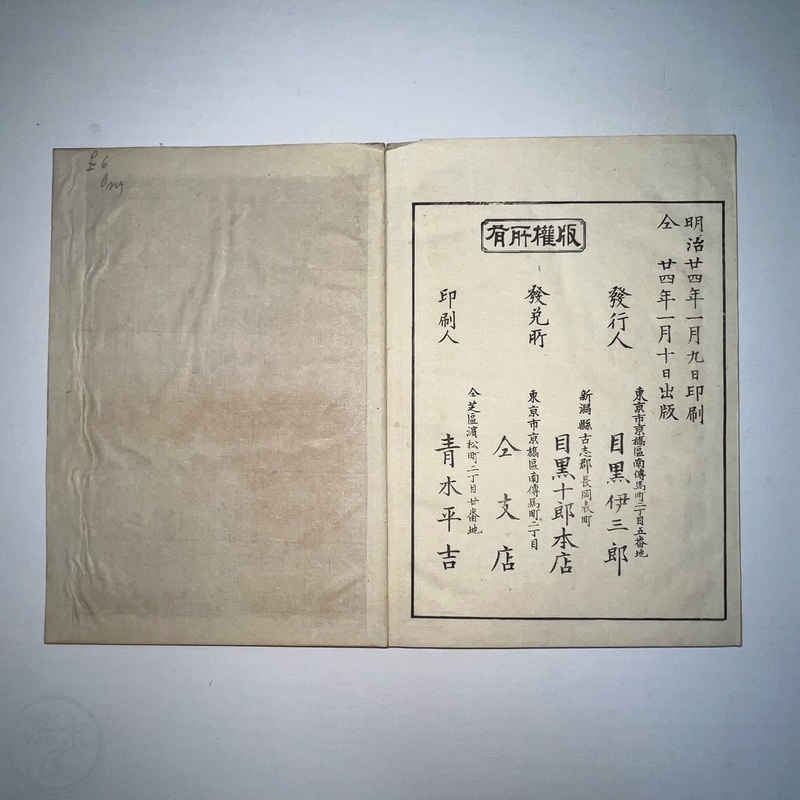 明治廿四年一月九日印刷
仝 廿四年一月十日出版
版權所有
發行人
東京市京橋區南傳馬町二丁目五番地
目黒伊三郎
發兌所
新潟縣古志郡長岡表町
目黒十郎本店
東京市京橋區南傳馬町二丁目
仝支店
印刷人
仝芝區濱松町二丁目廿番地
青木平吉
£6